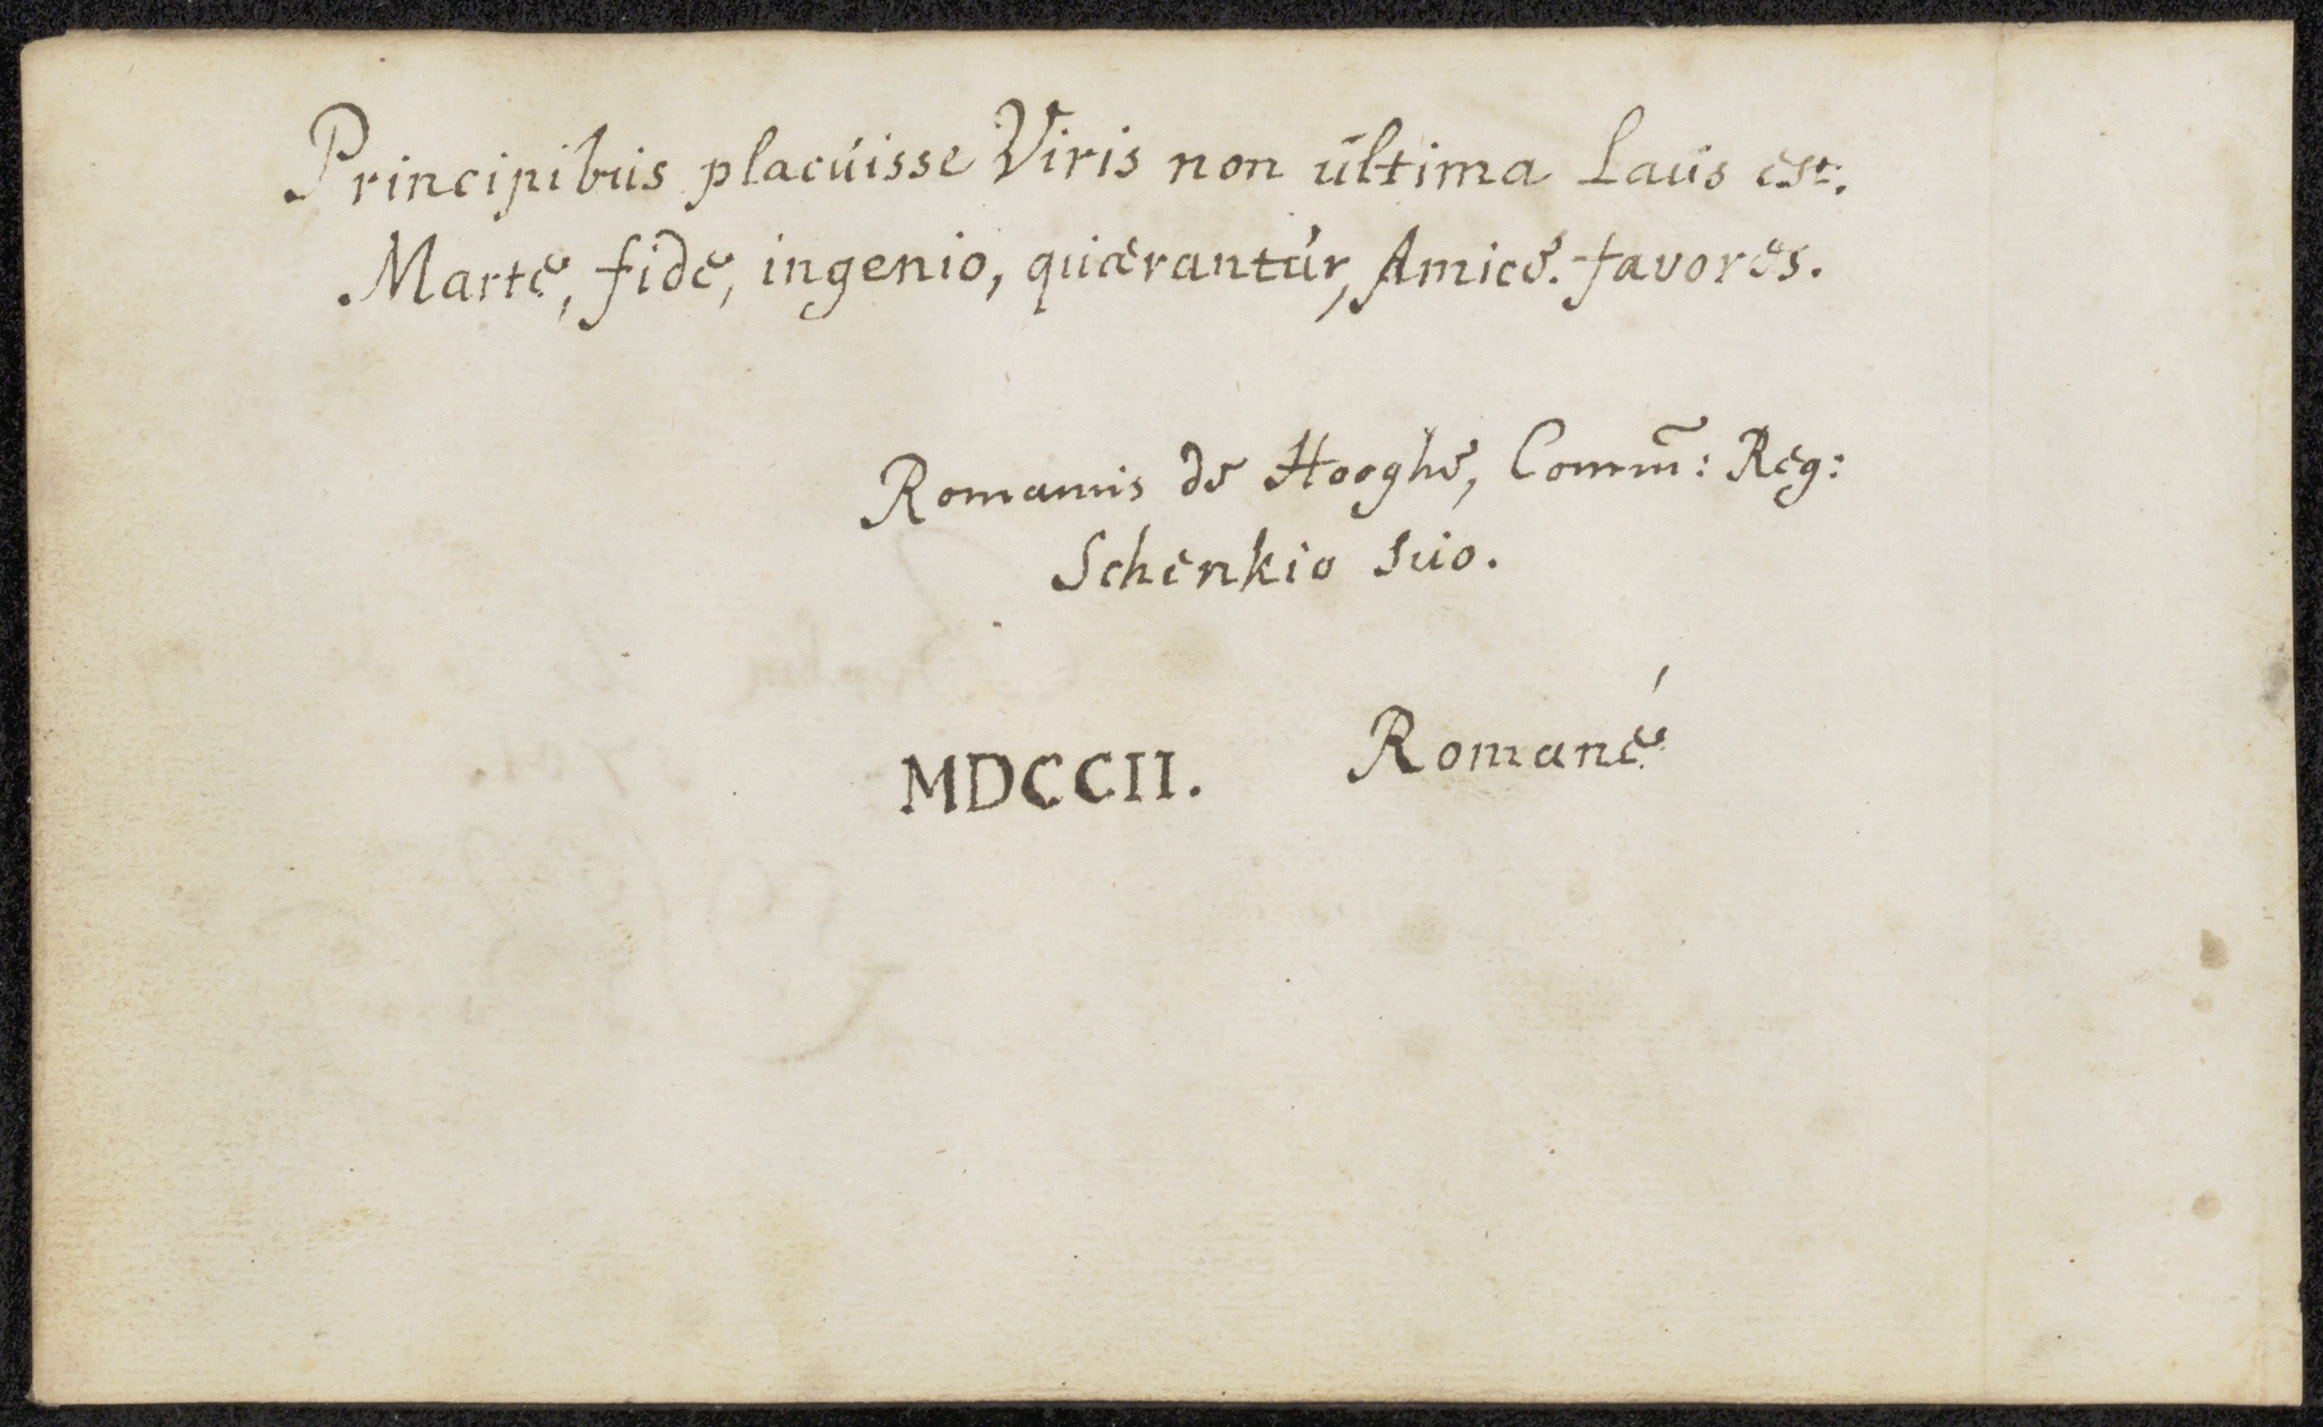 Principibus placuisse Viris non ultima Laus est.
Marte, fide, ingenio, quærantur, Amice. favores.
Romanus de Hooghe, Com̃: Reg:
Schenkio suo.
MDCCII. Romané